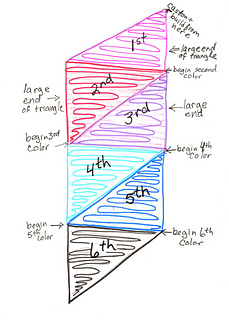 Caston +
build from
here
1st
large end of
triangle
begin second
color
2nd
large
end
of triangle
3rd
large
end
begin 3rd
color
begin 4th
color
4th
5th
begin
5th color
begin 6th
color
6th